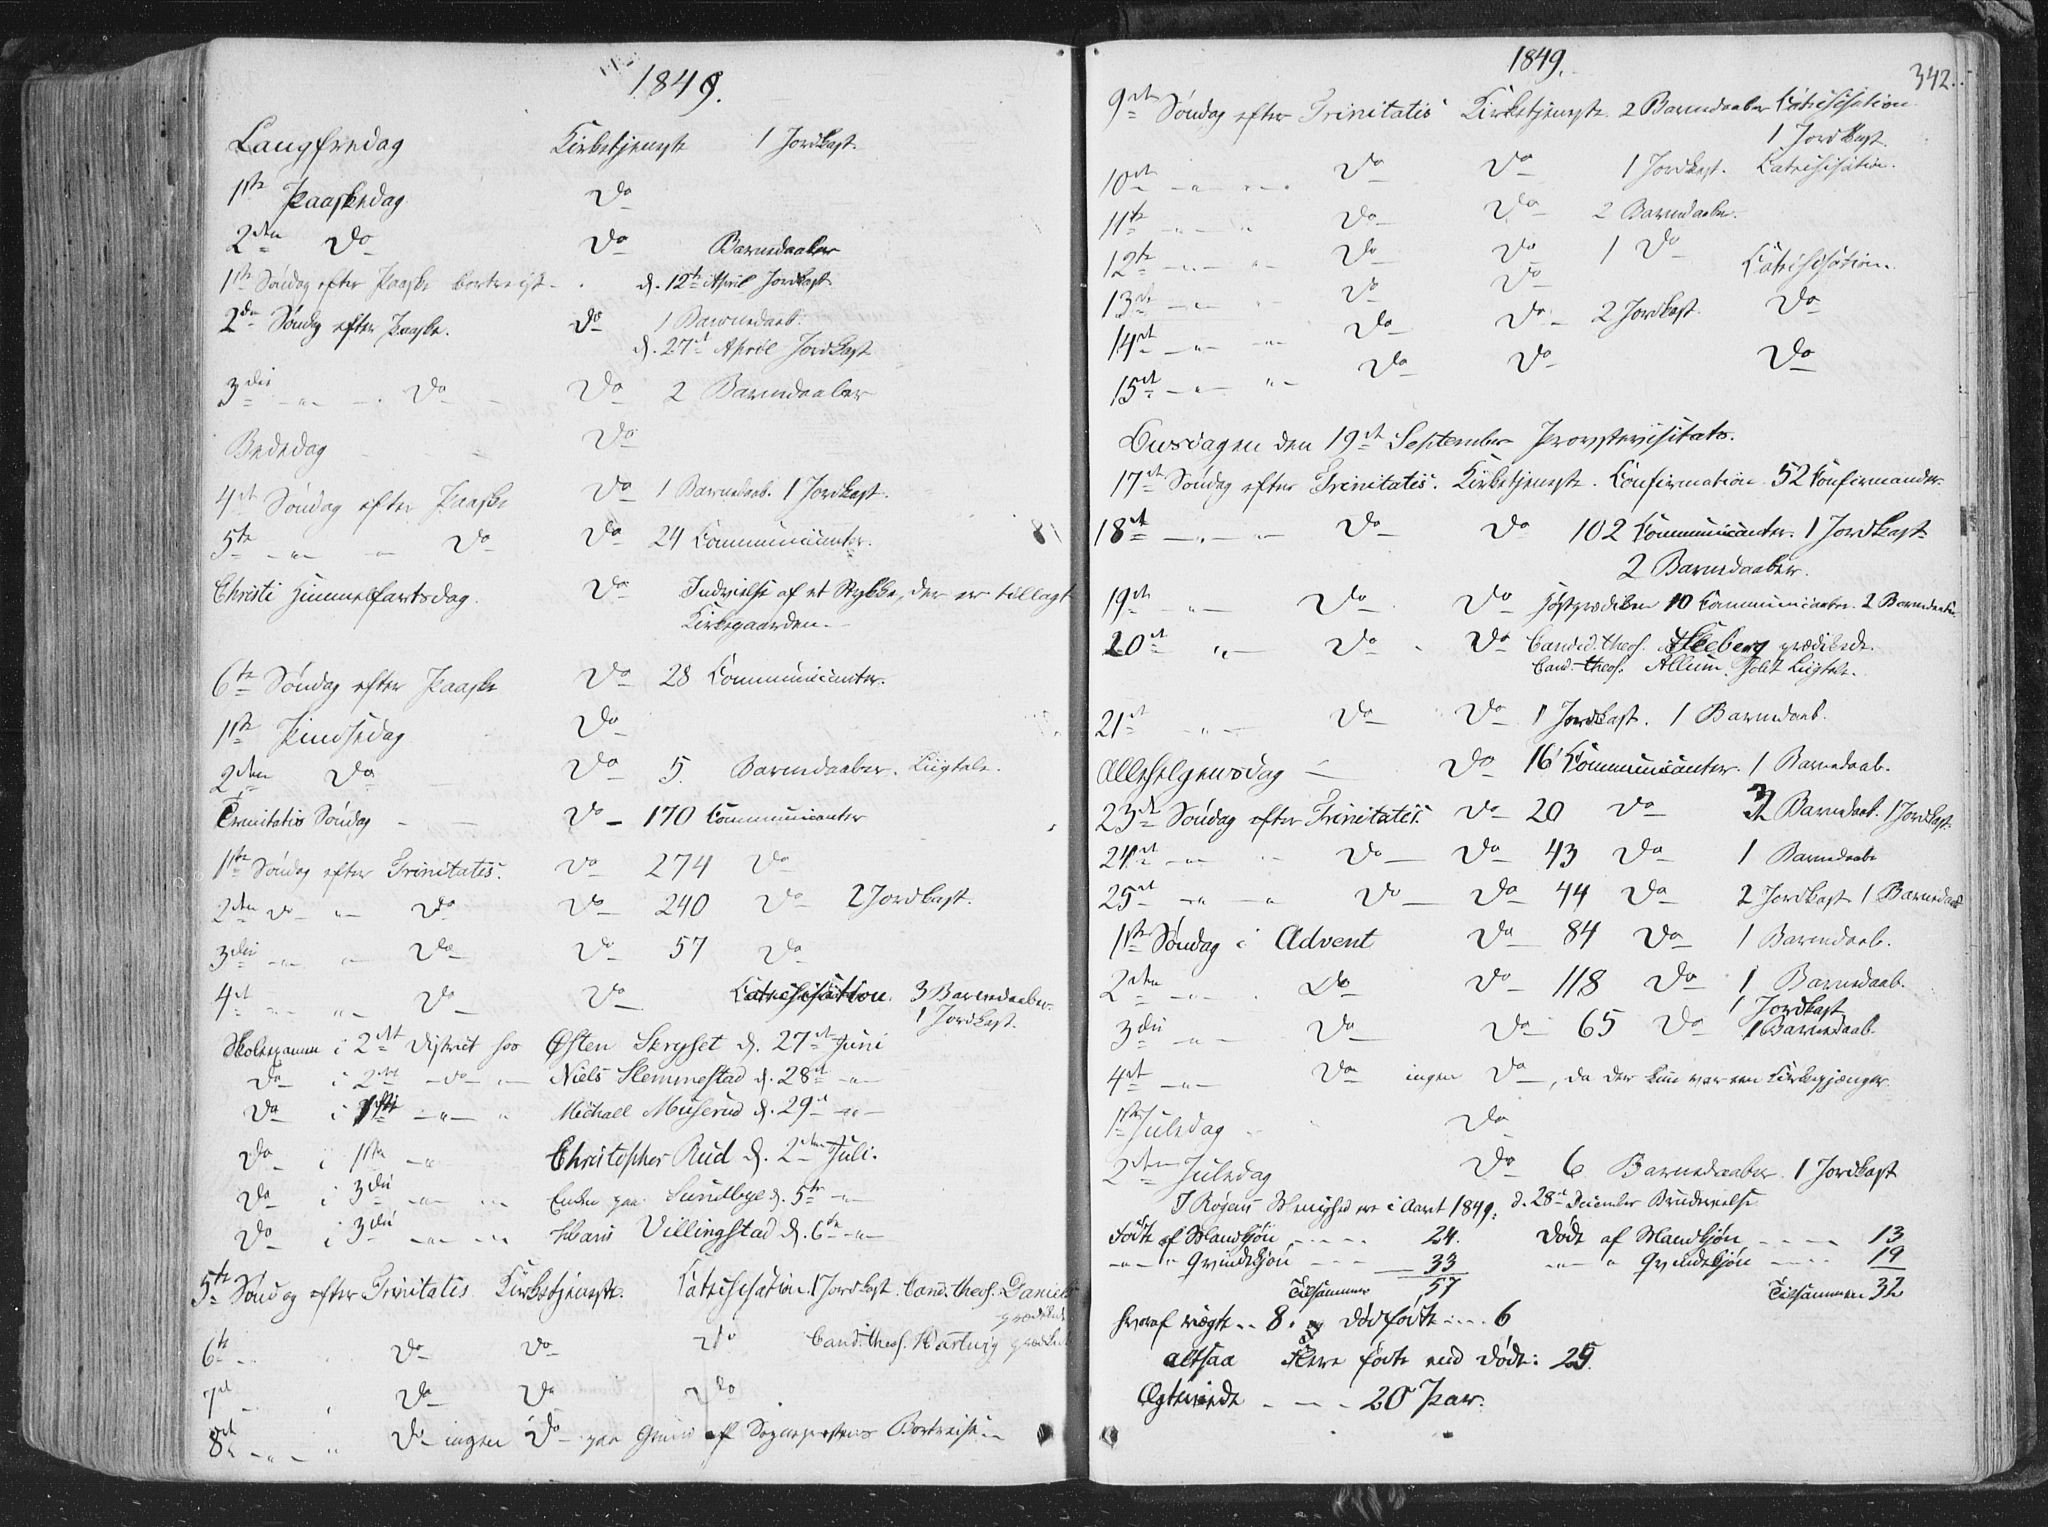 1849.
Langfredag Kirketjeneste 1 Jordkast.
1ste Paaskedag Do
2den Do Do Barnedaaber
1ste Søndag efter Paaske bortreist. d. 12te April Jordkast
2den Søndag efter Paaske. Do 1 Barnedaab.
d. 27de April Jordkast
3die -"- Do Do 2 Barnedaaber
Bededag Do
4de Søndag efter Paaske Do 1 Barnedaab. 1 Jordkast.
5te -"- Do Do 24 Communicanter.
Christi Himmelfartsdag. Do Indvielse af et Stykke, der er tillagt
Kirkegaarden.
6te Søndag efter Paaske Do 28 Communicanter.
1ste Pindsedag Do
2den Do Do 5 Barnedaaber. Liigtale.
Trinitatis Søndag Do 170 Communicanter
1ste Søndag efter Trinitatis. Do 274 Do
2den Do " Do Do 240 Do 2 Jordkast.
3die -"- " Do Do 57 Do
4de -"- " Do Do Catechisation. 3 Barnedaaber.
1 Jordkast.
Skolexamen i 2det District hos Østen Skryset d. 27de Juni
Do i 2det -Do- " Niels Slemmestad d. 28de -"-
Do i 1ste -"- " Michael Muserud d. 29de -"-
Do i 1ste -"- Christopher Rud d. 2den Juli.
Do i 3die -"- " Enken paa Sundbye d. 5te -"-
Do i 3die -"- " Hans Villingstad d. 6te -"-
5te Søndag efter Trinitatis Kirketjeneste. Catechisation. 1 Jordkast. Cand. theol. Daniels
prædikede
6te Do Do Do Cand: theol. Hartwig prædik.
7de Do Do Do
8de -"- " Do ingen Do paa Grund af Sognepræstens Bortreise.
1849.
342.
9de Søndag efter Trinitatis Kirketjeneste. 2 Barnedaaber Catechisation
1 Jordkast.
10de -"- " Do Do 1 Jordkast. Catechisation.
11te -"- " Do Do 2 Barnedaaber.
12te -"- " Do Do 1 Do Catechisation.
13de -"- " Do Do Do
14de -"- " Do Do 2 Jordkast. Do
15de -"- " Do Do
Onsdagen den 19de September Provstevisitats.
17de Søndag efter Trinitatis. Kirketjeneste. Confirmation. 52 Confirmander.
18de -"- " Do Do 102 Communicanter. 1 Jordkast
2 Barnedaaber.
19de " Do Do Høstprædiken 10 Communicanter. 2 Barnedaaber
20de " Do Do Candid. theol. prædikede.
Cand. theol. Allum. holdt Liigtale.
21de " Do Do 1 Jordkast. 1 Barnedaab.
Allehelgensdag Do 16 Communicanter. 1 Barnedaab.
23de Søndag efter Trinitatis. Do 20 Do 2 Barnedaab. 1 Jordkast.
24de -"- " Do Do 43 Do 1 Barnedaab
25de -"- " Do Do 44 Do 2 Jordkast 1 Barnedaab
1ste Søndag i Advent Do 84 Do 1 Barnedaab.
2den -"- Do Do 118 Do 1 Barnedaab.
1 Jordkast
3die -"- Do Do 65 Do 1 Barnedaab.
4de -"- Do ingen Do, da der kun var een Kirkegjænger
1ste Juledag Do
2den Juledag Do 6 Barnedaaber. 1 Jordkast
d. 28de December Brudevielse
I Røgens Menighed ere i Aaret 1849:
Fødte af Mandkjøn 24. Døde af Mandkjøn 13
-"- " Qvindekjøn 33 -"- " Qvindekjøn 19
Tilsammen 57 Tilsammen 32
hvoraf uægte 8. og dødfødte 6
altsaa flere fødte end døde: 25.
Ægteviede 20 Par.